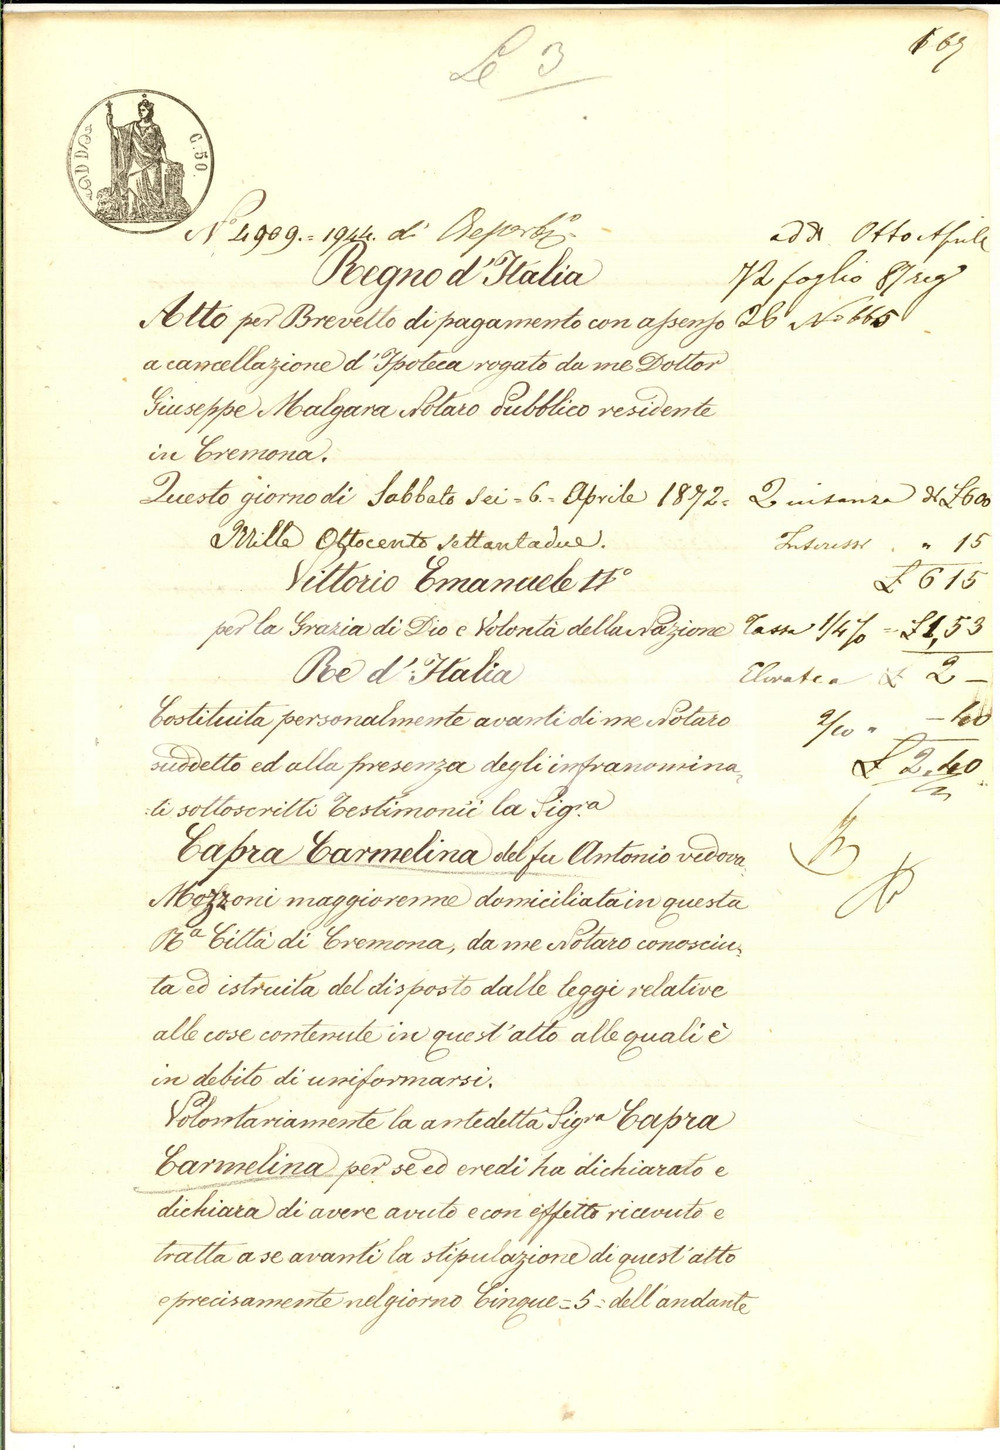 Le 3
169
C. 50.
N.o 4909.= 1944. di Repert.o
Regno d'Italia
Atto per Brevetto di pagamento con assenso
a cancellazione d'Ipoteca rogato da me Dottor
Giuseppe Malgara Notaro Pubblico residente
in Cremona.
Questo giorno di Sabbato Sei = 6 = Aprile 1872 =
Mille Ottocento settantadue.
Vittorio Emanuele II.o
per la Grazia di Dio e Volontà della Nazione
Re d'Italia
Costituita personalmente avanti di me Notaro
suddetto ed alla presenza degli infranomina-
-ti sottoscritti Testimonii la Sig.ra
Capra Carmelina del fu Antonio vedova
Mozzoni maggiorenne domiciliata in questa
R.a Città di Cremona, da me Notaro conosciu-
ta ed istruita del disposto dalle leggi relative
alle cose contenute in quest'atto alle quali è
in debito di uniformarsi.
Volontariamente la antedetta Sig.ra Capra
Carmelina per se ed eredi ha dichiarato e
dichiara di avere avuto e con effetto ricevuto e
tratta a se avanti la stipulazione di quest'atto
e precisamente nel giorno Cinque = 5 = dell'andante
addì Otto Aprile
72 foglio 87 reg
26 N.o 665
Quitanza di £ 600
Interessi " 15
£ 615
Tassa 1/4 % = £ 1,53
Elevata a £ 2 —
2/10 " — 40
£ 2.40